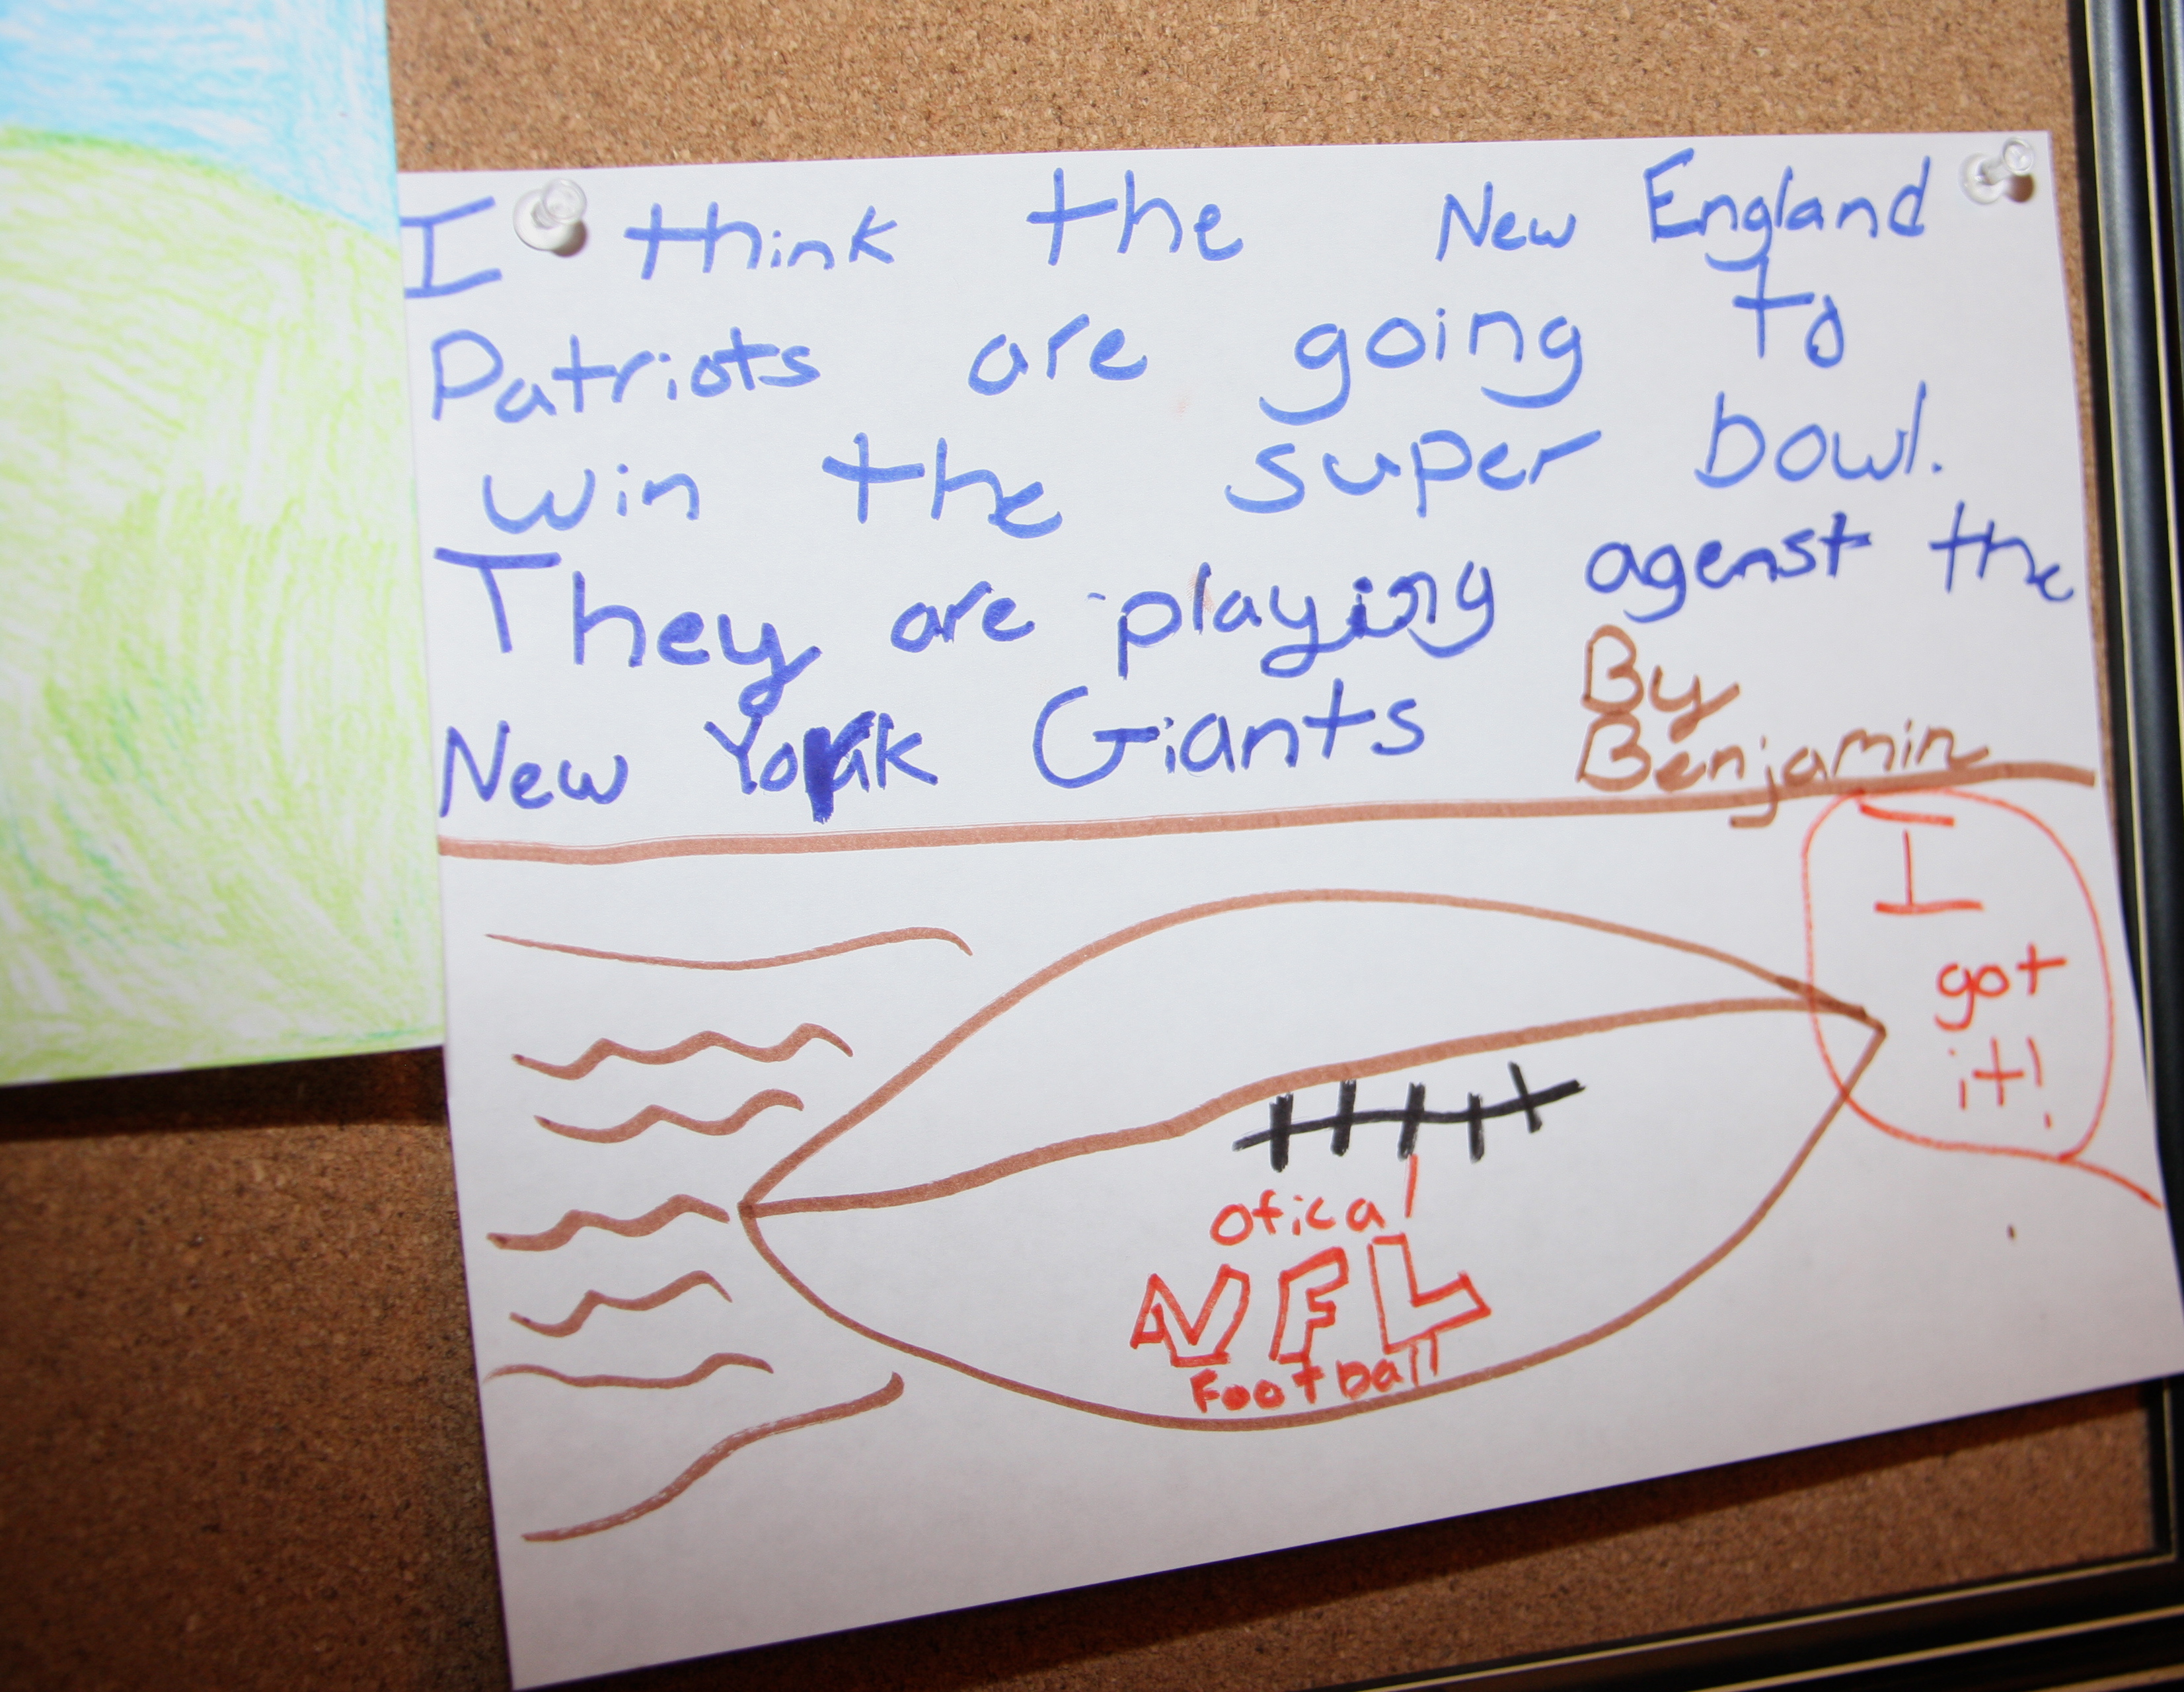 I think the New England
Patriots are going to
win the super bowl.
They are playing agenst the
New York Giants
By
Benjamin
I
got
it!
Ofical
NFL
Football